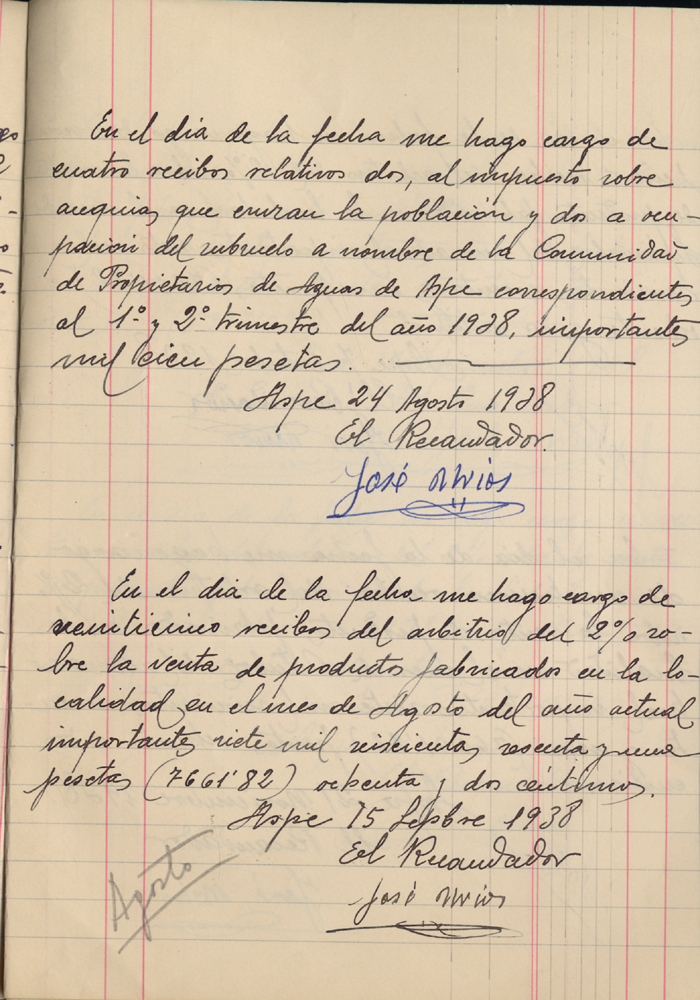 En el día de la fecha me hago cargo de
cuatro recibos relativos dos, al impuesto sobre
acequias que cruzan la población y dos a ocu-
pación del subsuelo a nombre de la Comunidad
de Propietarios de Aguas de Aspe correspondientes
al 1º y 2º trimestre del año 1938, importantes
mil cien pesetas.
Aspe 24 Agosto 1938
El Recaudador.
José
En el día de la fecha me hago cargo de
veinticinco recibos del arbitrio del 2% so-
bre la venta de productos fabricados en la lo-
calidad en el mes de Agosto del año actual
importantes siete mil seiscientas sesenta y una
pesetas (7661'82) ochenta y dos céntimos.
Aspe 15 Sepbre 1938
El Recaudador
José
Agosto